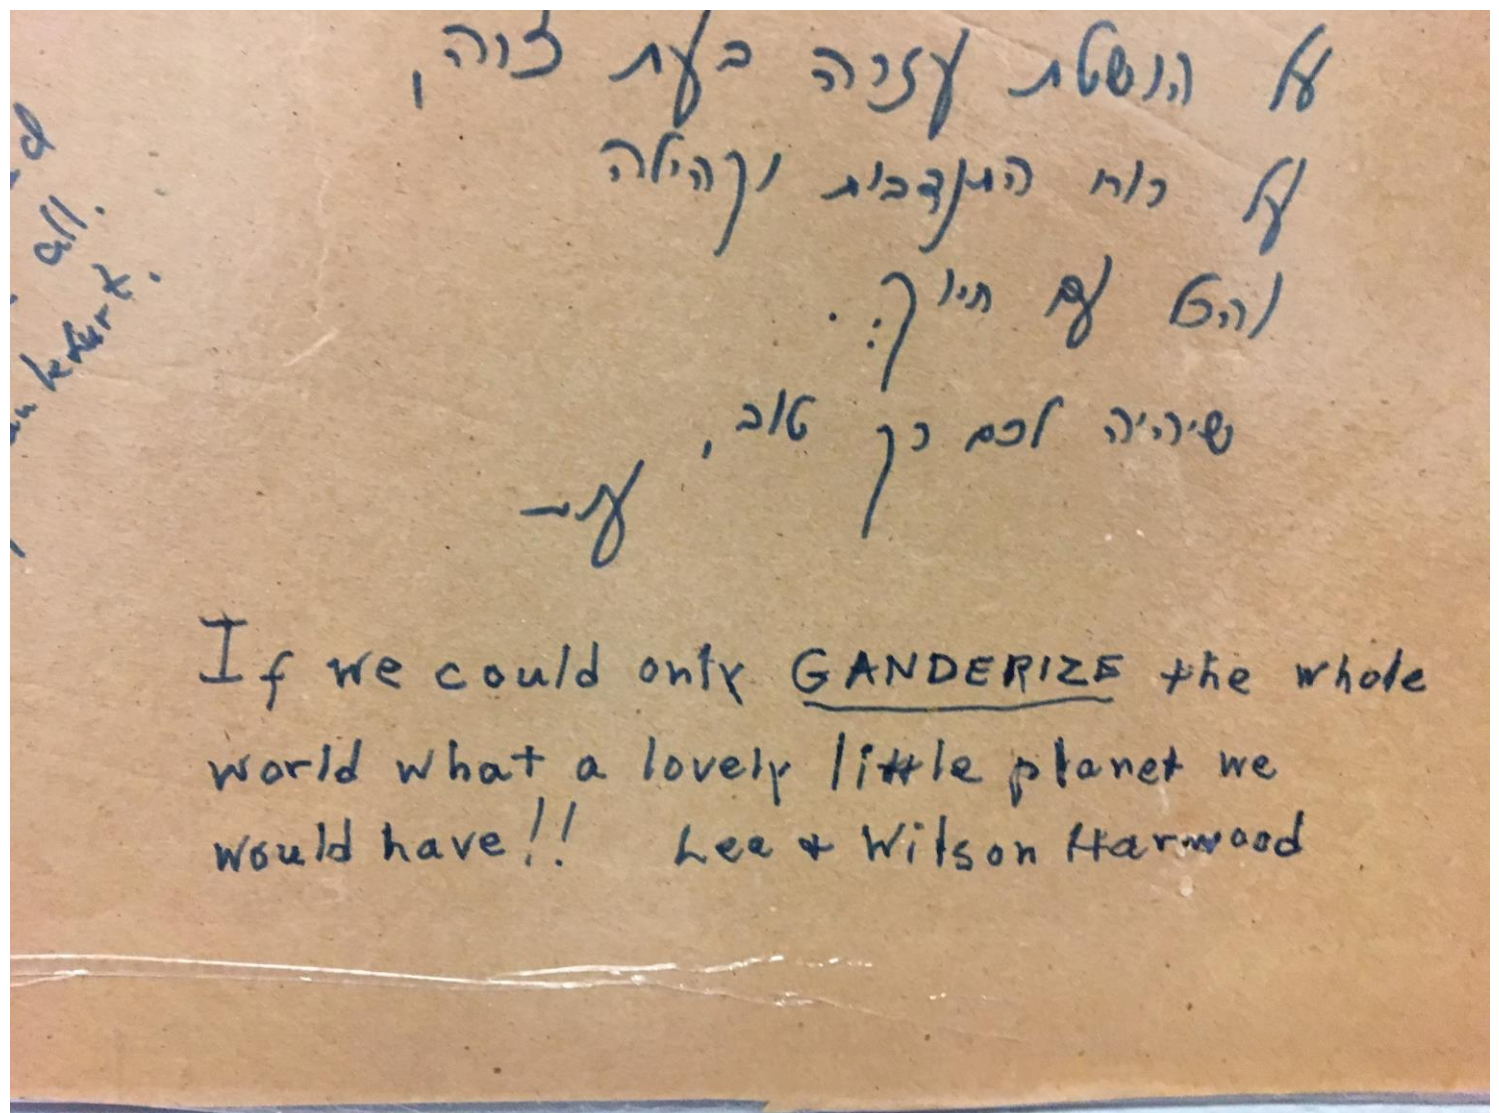 על הושטת עזרה בעת צרה,
על רוח התנדבות וקהילה
והכל עם חיוך...
שיהיה לכם רק טוב,
all.
If we could only GANDERIZE the whole
world what a lovely little planet we
would have!! Lee & Wilson Harwood